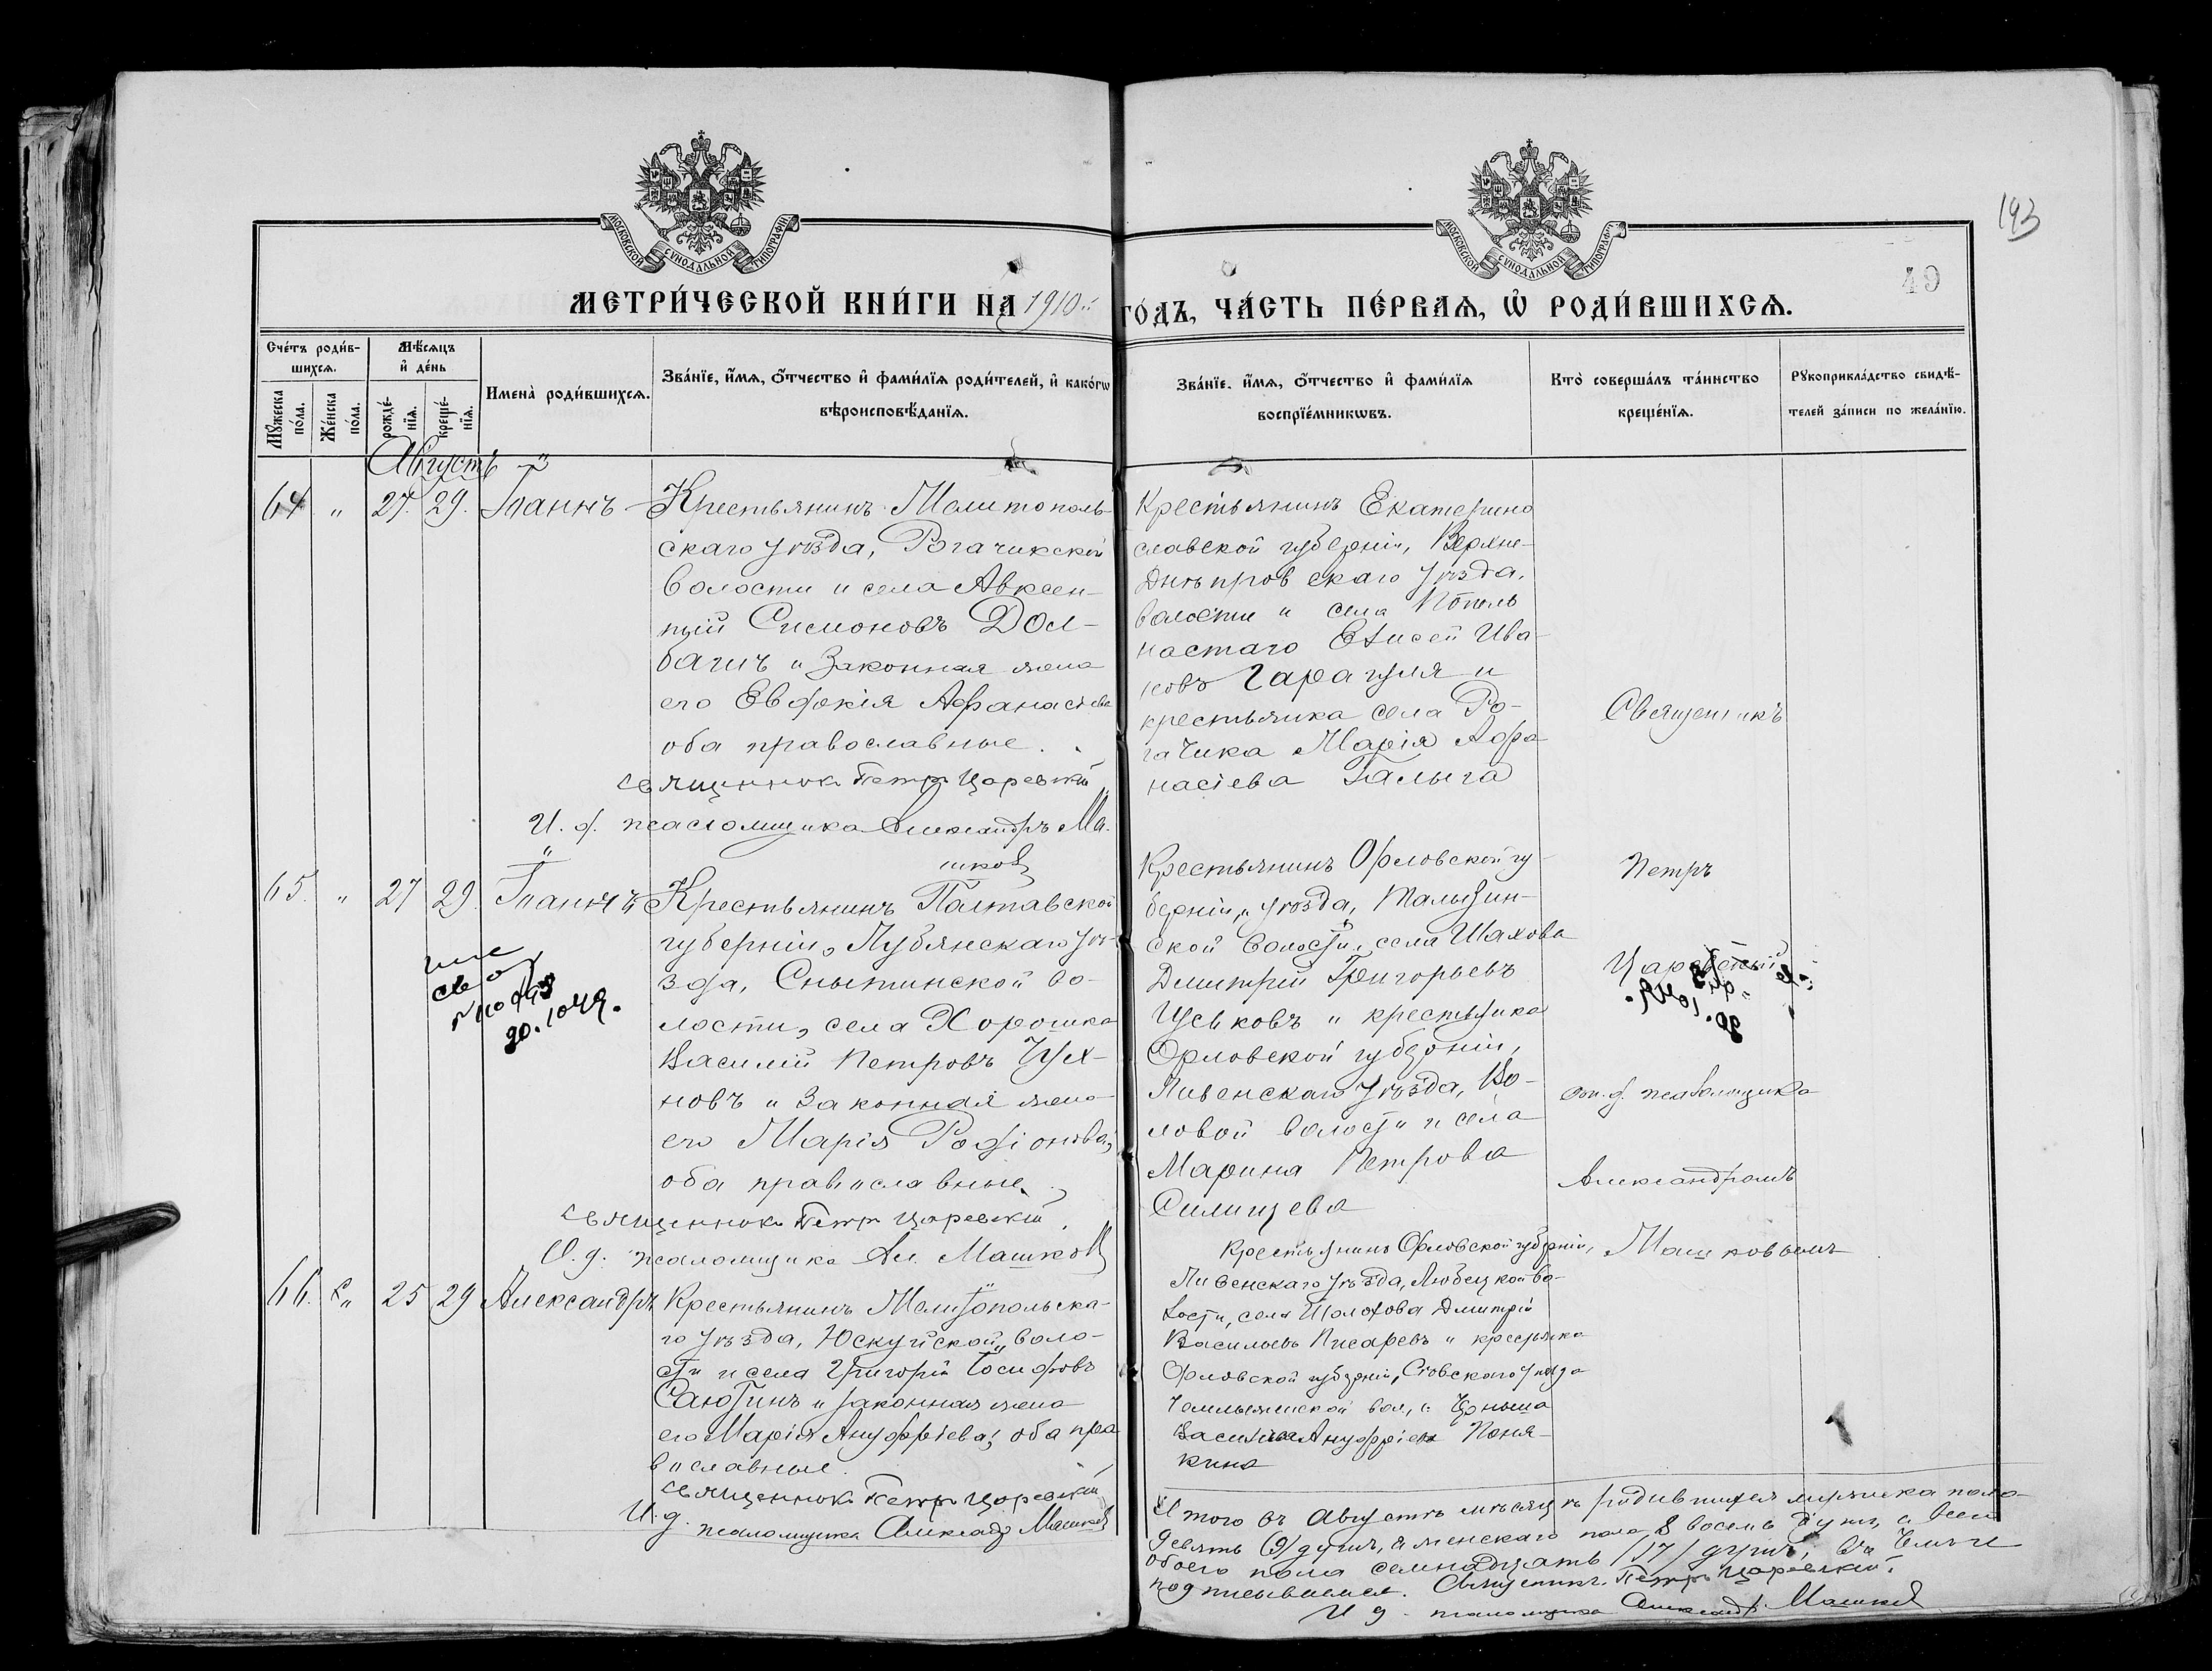 193
49
МОСКОВСКОЙ СѴНОДАЛЬНОЙ ТИПОГРАФІИ
МОСКОВСКОЙ СѴНОДАЛЬНОЙ ТИПОГРАФІИ
МЕТРИ́ЧЕСКОЙ КНИ́ГИ НА 1910 ГО́ДЪ, ЧА́СТЬ ПЕ́РВАѦ, Ѡ҆ РОДИ́ВШИХСѦ.
Сче́тъ роди́в-
шихсѧ.
Мꙋ́жеска по́ла.
Же́нска по́ла.
Мѣ́сѧцъ
и҆ де́нь
рожде́-
нїѧ.
креще́-
нїѧ.
Имена̀ роди́вшихсѧ.
Зва́нїе, и҆́мѧ, ѻ҆́тчество и҆ фами́лїѧ роди́телей, и҆ како́гѡ
вѣроисповѣ́данїѧ.
Зва́нїе, и҆́мѧ, ѻ҆́тчество и҆ фами́лїѧ
воспрїе́мникѡвъ.
Кто̀ соверша́лъ та́инство
креще́нїѧ.
Рꙋкоприкла́дство свидѣ́-
телей за́писи по жела́нїю.
Августъ
64 " 27. 29. Іоаннъ
Крестьянинъ Мелитополь-
скаго уѣзда, Рогачикской
волости и села Авксен-
тий Симоновъ Дол-
багичъ и законная жена
его Евдокія Афанасіева
оба православные.
священник Петр Царевский
И. д. псаломщика Александръ Ма-
шков
Крестьянинъ Екатерино
славской губерніи, Верхне-
Днѣпровскаго уѣзда,
волости и села Попель
настаго Елисей Ива-
новъ Гарагуля и
крестьянка села Ро-
гачика Марія Афа
насіева Галыга
Священникъ
65. " 27 29. Іоаннъ
Крестьянинъ Полтавской
губерніи, Лубянскаго уѣ-
зда, Снытинской во-
лости, села Хорошка
Василій Петровъ Чух-
новъ и законная жена
его Марія Родіонова,
оба православные.
священник Петр Царевский
И. д. псаломщика Ал. Машков
Крестьянинъ Орловской гу-
берніи и уѣзда, Талызин-
ской волости, села Шахова
Дмитрій Григорьевъ
Цуськовъ и крестьянка
Орловской губерніи,
Ливенскаго уѣзда, Во-
ловой волости и села
Марина Петрова
Силищева
Петръ
Царевскій
съ
и. д. псаломщика
Александромъ
Машковымъ
20.10.49.
66. " 25 29 Александръ
Крестьянинъ Мелитопольска-
го уѣзда, Юскуйской воло-
сти и села Григорій Іосифовъ
Саютинъ и законная жена
его Марія Ануфріева, оба пра
вославные.
священник Петр Царевский
И. д. псаломщика Александр Машков
Крестьянинъ Орловской губерніи,
Ливенскаго уѣзда, Любецкой во-
лости, села Шолохова Дмитрій
Васильевъ Писаревъ и крестьянка
Орловской губерніи, Сѣвскаго уѣзда
вол., с.
Василиса Ануфріева Поня-
кина
Итого въ Августѣ мѣсяцѣ родившихся мужска пола
девять (9) душъ, а женскаго пола 8 восемь душъ, а всего
обоего пола семнадцать /17/ душъ, въ чемъ и
подписываемся. Священникъ Петръ Царевский.
И д. псаломщика Александр Машков